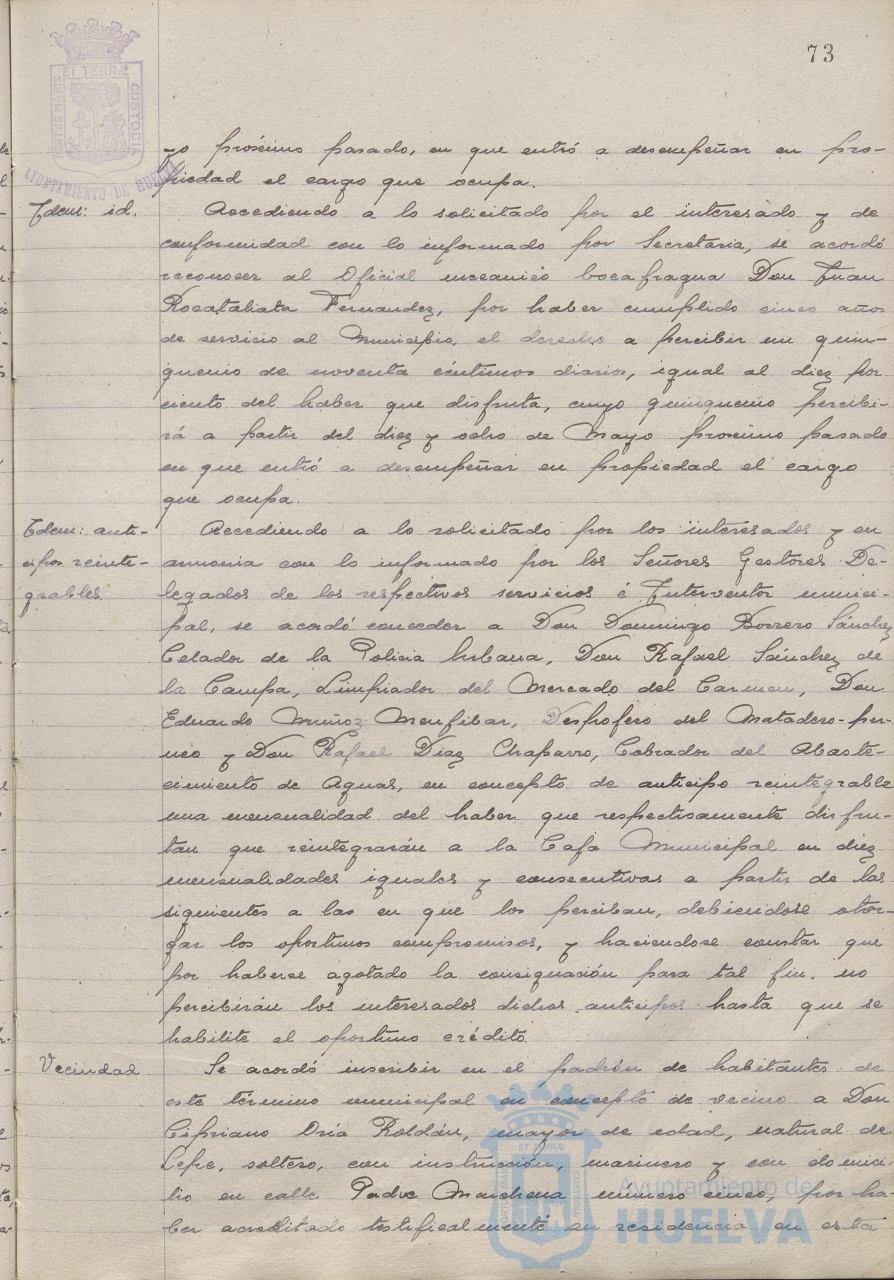 73
PORTUS MARIS ET TERRÆ CUSTODIA
AYUNTAMIENTO DE HUELVA
yo proximo pasado, en que entró a desempeñar en pro-
piedad el cargo que ocupa.
Idem: id.
Accediendo a lo solicitado por el interesado y de
conformidad con lo informado por Secretaria, se acordó
reconocer al Oficial mecanico bocafragua Don Juan
Rocatallata Fernandez, por haber cumplido cinco años
de servicio al Municipio, el derecho a percibir un quin-
quenio de noventa céntimos diarios, igual al diez por
ciento del haber que disfruta, cuyo quinquenio percibi-
rá a partir del diez y ocho de Mayo proximo pasado
en que entró a desempeñar en propiedad el cargo
que ocupa.
Idem: anti-
cipos reinte-
grables.
Accediendo a lo solicitado por los interesados y en
armonia con lo informado por los Señores Gestores De-
legados de los respectivos servicios é Interventor munici-
pal, se acordó conceder a Don Domingo Borrero Sánchez
Celador de la Policia Urbana, Don Rafael Sánchez de
la Campa, Limpiador del Mercado del Carmen, Don
Eduardo Muñoz Menfibar, Despofero del Matadero-per-
neo y Don Rafael Diaz Chaparro, Cobrador del Abaste-
cimiento de Aguas, en concepto de anticipo reintegrable
una mensualidad del haber que respectivamente disfru-
tan que reintegrarán a la Caja Municipal en diez
mensualidades iguales y consecutivas a partir de las
siguientes a las en que los perciban, debiendose otor-
gar los oportunos compromisos, y haciendose constar que
por haberse agotado la consignación para tal fin, no
percibirán los interesados dichos anticipos hasta que se
habilite el oportuno crédito.
Vecindad
Se acordó inscribir en el padrón de habitantes de
este término municipal en concepto de vecino a Don
Cipriano Oria Roldán, mayor de edad, natural de
Lepe, soltero, con instrucción, marinero y con domici-
lio en calle Padre Marchena número cinco, por ha-
ber acreditado testificalmente su residencia en esta
Ayuntamiento de
HUELVA